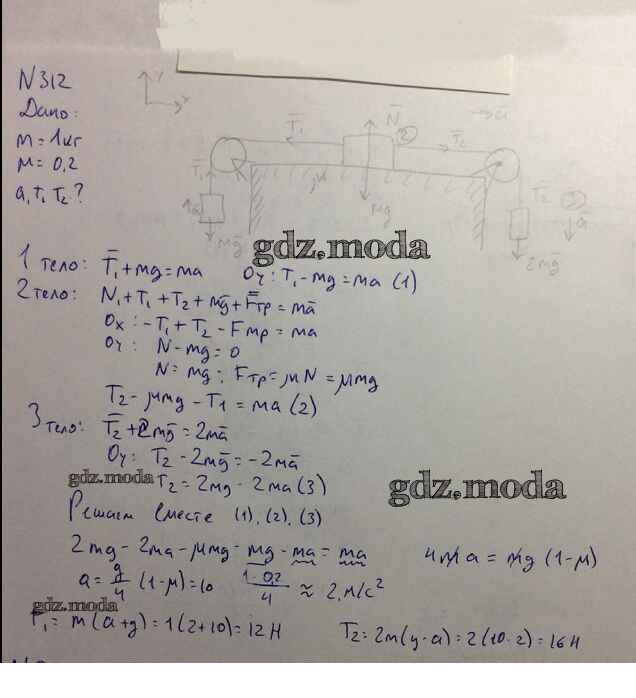 N312
Дано:
m = 1кг
μ = 0,2
a, T₁ T₂ ?
y
x
T̄₁
N̄
②
T̄₂
→ ā
T̄₁
μ
mg
ā
mḡ
T̄₂
③
ā
2mḡ
gdz.moda
1 тело: T̄₁ + mg = ma Oy: T₁ - mg = ma (1)
2 тело: N₁ + T₁ + T₂ + mḡ + F̄тр = mā
Ox: -T₁ + T₂ - Fтр = ma
Oy: N - mg = 0
N = mg; Fтр = μN = μmg
T₂ - μmg - T₁ = ma (2)
3 тело: T̄₂ + 2mḡ = 2mā
Oy: T₂ - 2mḡ = -2mā
gdz.moda T₂ = 2mg - 2ma (3)
gdz.moda
Решаем вместе (1), (2), (3)
2mg - 2ma - μmg - mg - ma = ma 4ma = mg (1-μ)
a = g/4 (1-μ) = 10 (1-0,2)/4 ≈ 2 м/с²
gdz.moda
T₁ = m(a+g) = 1(2+10) = 12 H T₂ = 2m(g-a) = 2(10-2) = 16H